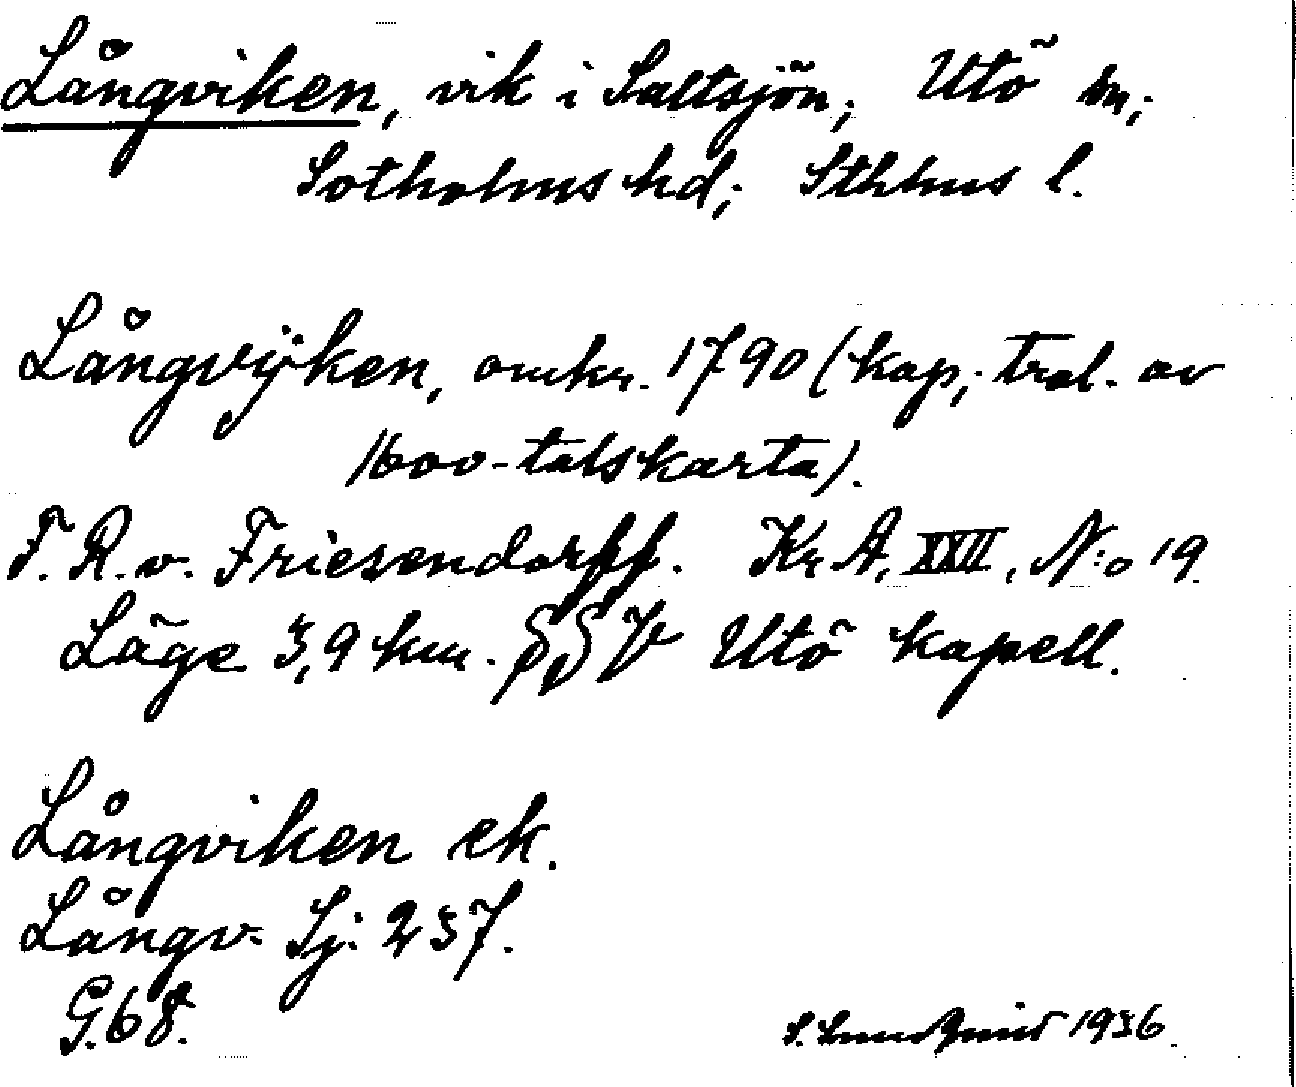 Långviken, vik i Saltsjön; Utö sn;
Sotholms hd; Sthlms l.
Långvijken, omkr. 1790 (kap; trol. av
1600-talskarta).
F. R. v. Friesendorff. Kr. A. XXII, N:o 19.
Läge 3,9 km. SSV Utö kapell.
Långviken ek.
Långv. Sj. 237.
G. 68.
S. Lundqvist 1936.